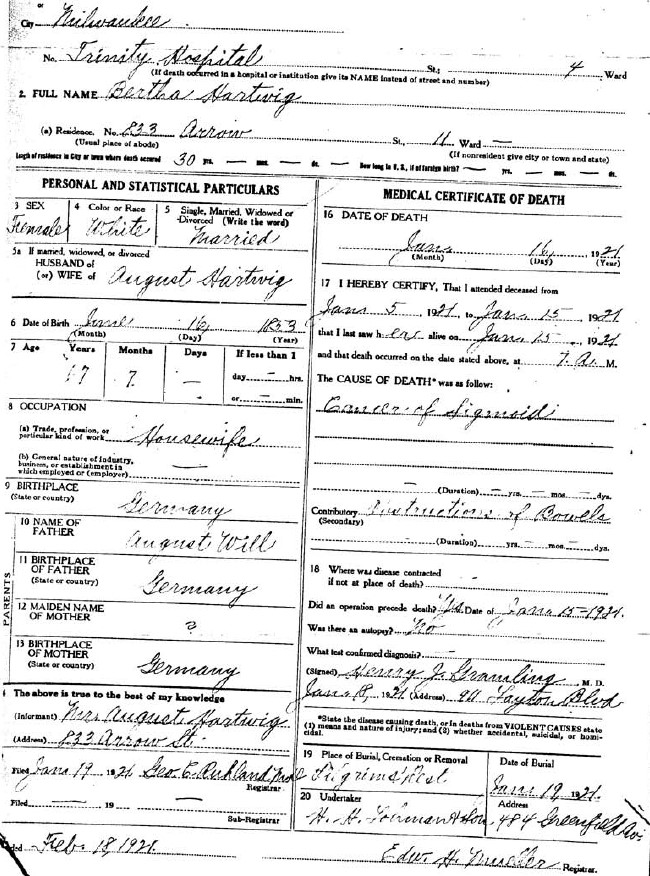 or
City Milwaukee
No. Trinity Hospital St.; 4 Ward
(If death occurred in a hospital or institution give its NAME instead of street and number)
2. FULL NAME Bertha Hartwig
(a) Residence. No. 833 Arrow St., 11 Ward —
(Usual place of abode) (If nonresident give city or town and state)
Length of residence in City or town where death occured 30 yrs. — mos. — ds. How long in U. S., if of foreign birth? — yrs. — mos. — ds.
PERSONAL AND STATISTICAL PARTICULARS
3 SEX 4 Color or Race 5 Single, Married, Widowed or
Divorced (Write the word)
Female White Married
5a If married, widowed, or divorced
HUSBAND of
(or) WIFE of August Hartwig
6 Date of Birth June 16 1853
(Month) (Day) (Year)
7 Age Years Months Days If less than 1
7 — day — hrs.
or — min.
8 OCCUPATION
(a) Trade, profession, or
particular kind of work Housewife
(b) General nature of industry,
business, or establishment in
which employed or (employer) —
9 BIRTHPLACE
(State or country) Germany
PARENTS
10 NAME OF
FATHER August Will
11 BIRTHPLACE
OF FATHER
(State or country) Germany
12 MAIDEN NAME
OF MOTHER ?
13 BIRTHPLACE
OF MOTHER
(State or country) Germany
The above is true to the best of my knowledge
(Informant) Mr. August Hartwig
(Address) 833 Arrow St.
Filed Jan 19 1921 Geo. C. Ruhland
Registrar
Filed — 19 —
Sub-Registrar
Feb. 18, 1921.
MEDICAL CERTIFICATE OF DEATH
16 DATE OF DEATH
Jan. 16, 1921
(Month) (Day) (Year)
17 I HEREBY CERTIFY, That I attended deceased from
Jan 5, 1921, to Jan 15, 1921
that I last saw her alive on Jan 15, 1921
and that death occurred on the date stated above, at 7. A. M.
The CAUSE OF DEATH* was as follow:
Cancer of Sigmoid
— (Duration) — yrs. — mos. — dys.
Contributory Obstructions of Bowels
(Secondary)
— (Duration) yrs. — mos. — dys.
18 Where was disease contracted
if not at place of death? —
Did an operation precede death? Yes. Date of Jan. 15-1921.
Was there an autopsy? No
What test confirmed diagnosis? —
(Signed) Henry J. Gramling M. D.
Jan 18, 1921 (Address) 911 Layton Blvd
*State the disease causing death, or in deaths from VIOLENT CAUSES state
(1) means and nature of injury; and (2) whether accidental, suicidal, or homi-
cidal.
19 Place of Burial, Cremation or Removal Date of Burial
Pilgrims Rest Jan 19, 1921.
20 Undertaker Address
484 Greenfield Av.
Edw. H. Mueller Registrar.